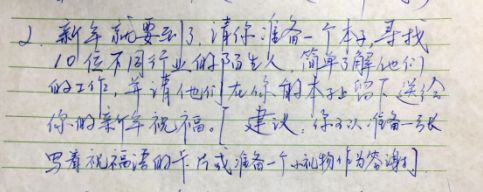 2. 新年就要到了,请你准备一个本子寻找
10位不同行业的陌生人,简单了解他们
的工作,并请他们在你的本子上留下送给
你的新年祝福。[建议:你可以准备一张
写着祝福语的卡片或准备一个小礼物作为答谢]